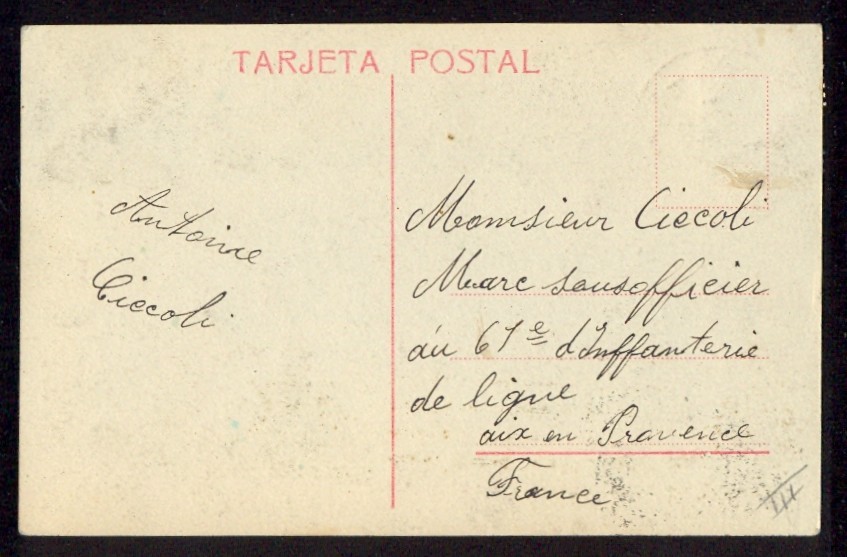 TARJETA POSTAL
Antoine
Ciccoli
Monsieur Ciccoli
Marc sousofficier
au 61e d'Inffanterie
de ligne
aix en Provence
France